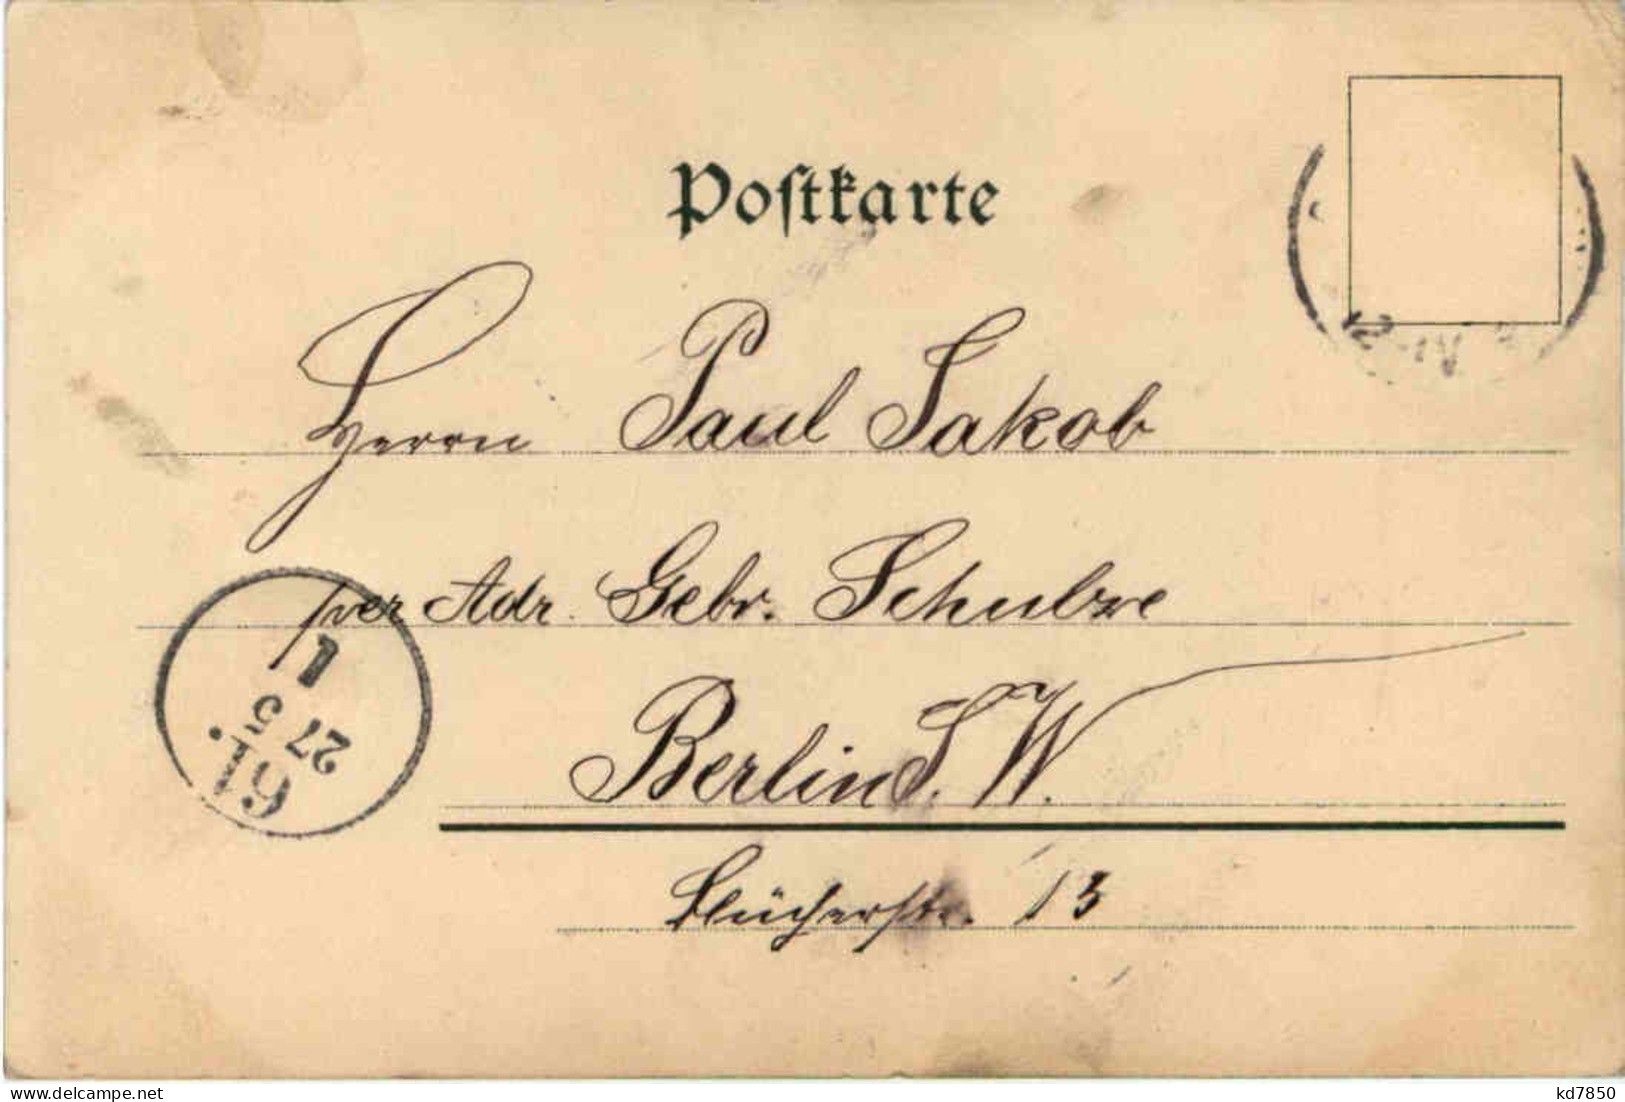 Postkarte
Herrn Paul Jakob
per Adr. Gebr. Schulze
Berlin S. W.
Blücherstr. 13
1
27 5
61.
delcampe.net
kd7850